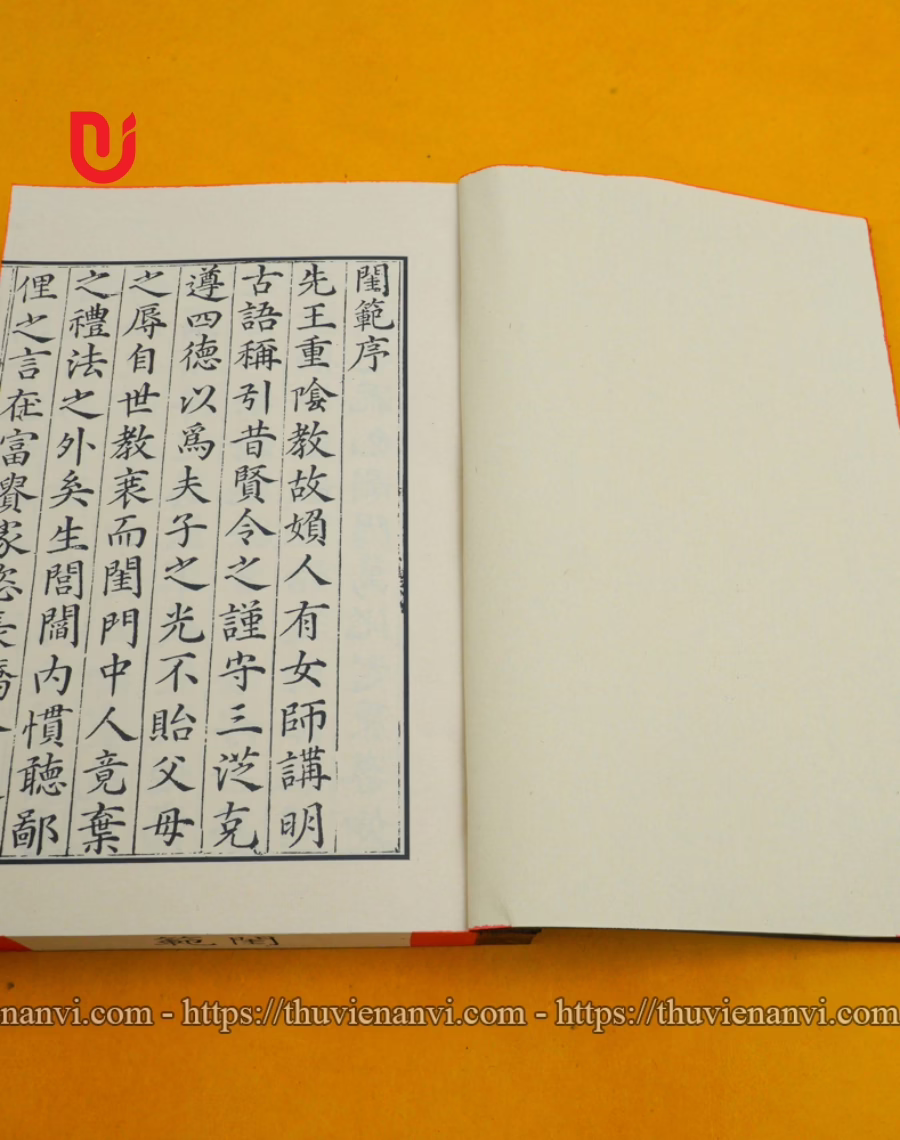 閨範序
先王重隂教故媍人有女師講明
古語稱引昔賢令之謹守三從克
遵四德以爲夫子之光不貽父母
之辱自世教衰而閨門中人竟棄
之禮法之外矣生閭閻内慣聽鄙
俚之言在富貴家恣長
閨範
nanvi.com - https://thuvienanvi.com - https://thuvienanvi.com